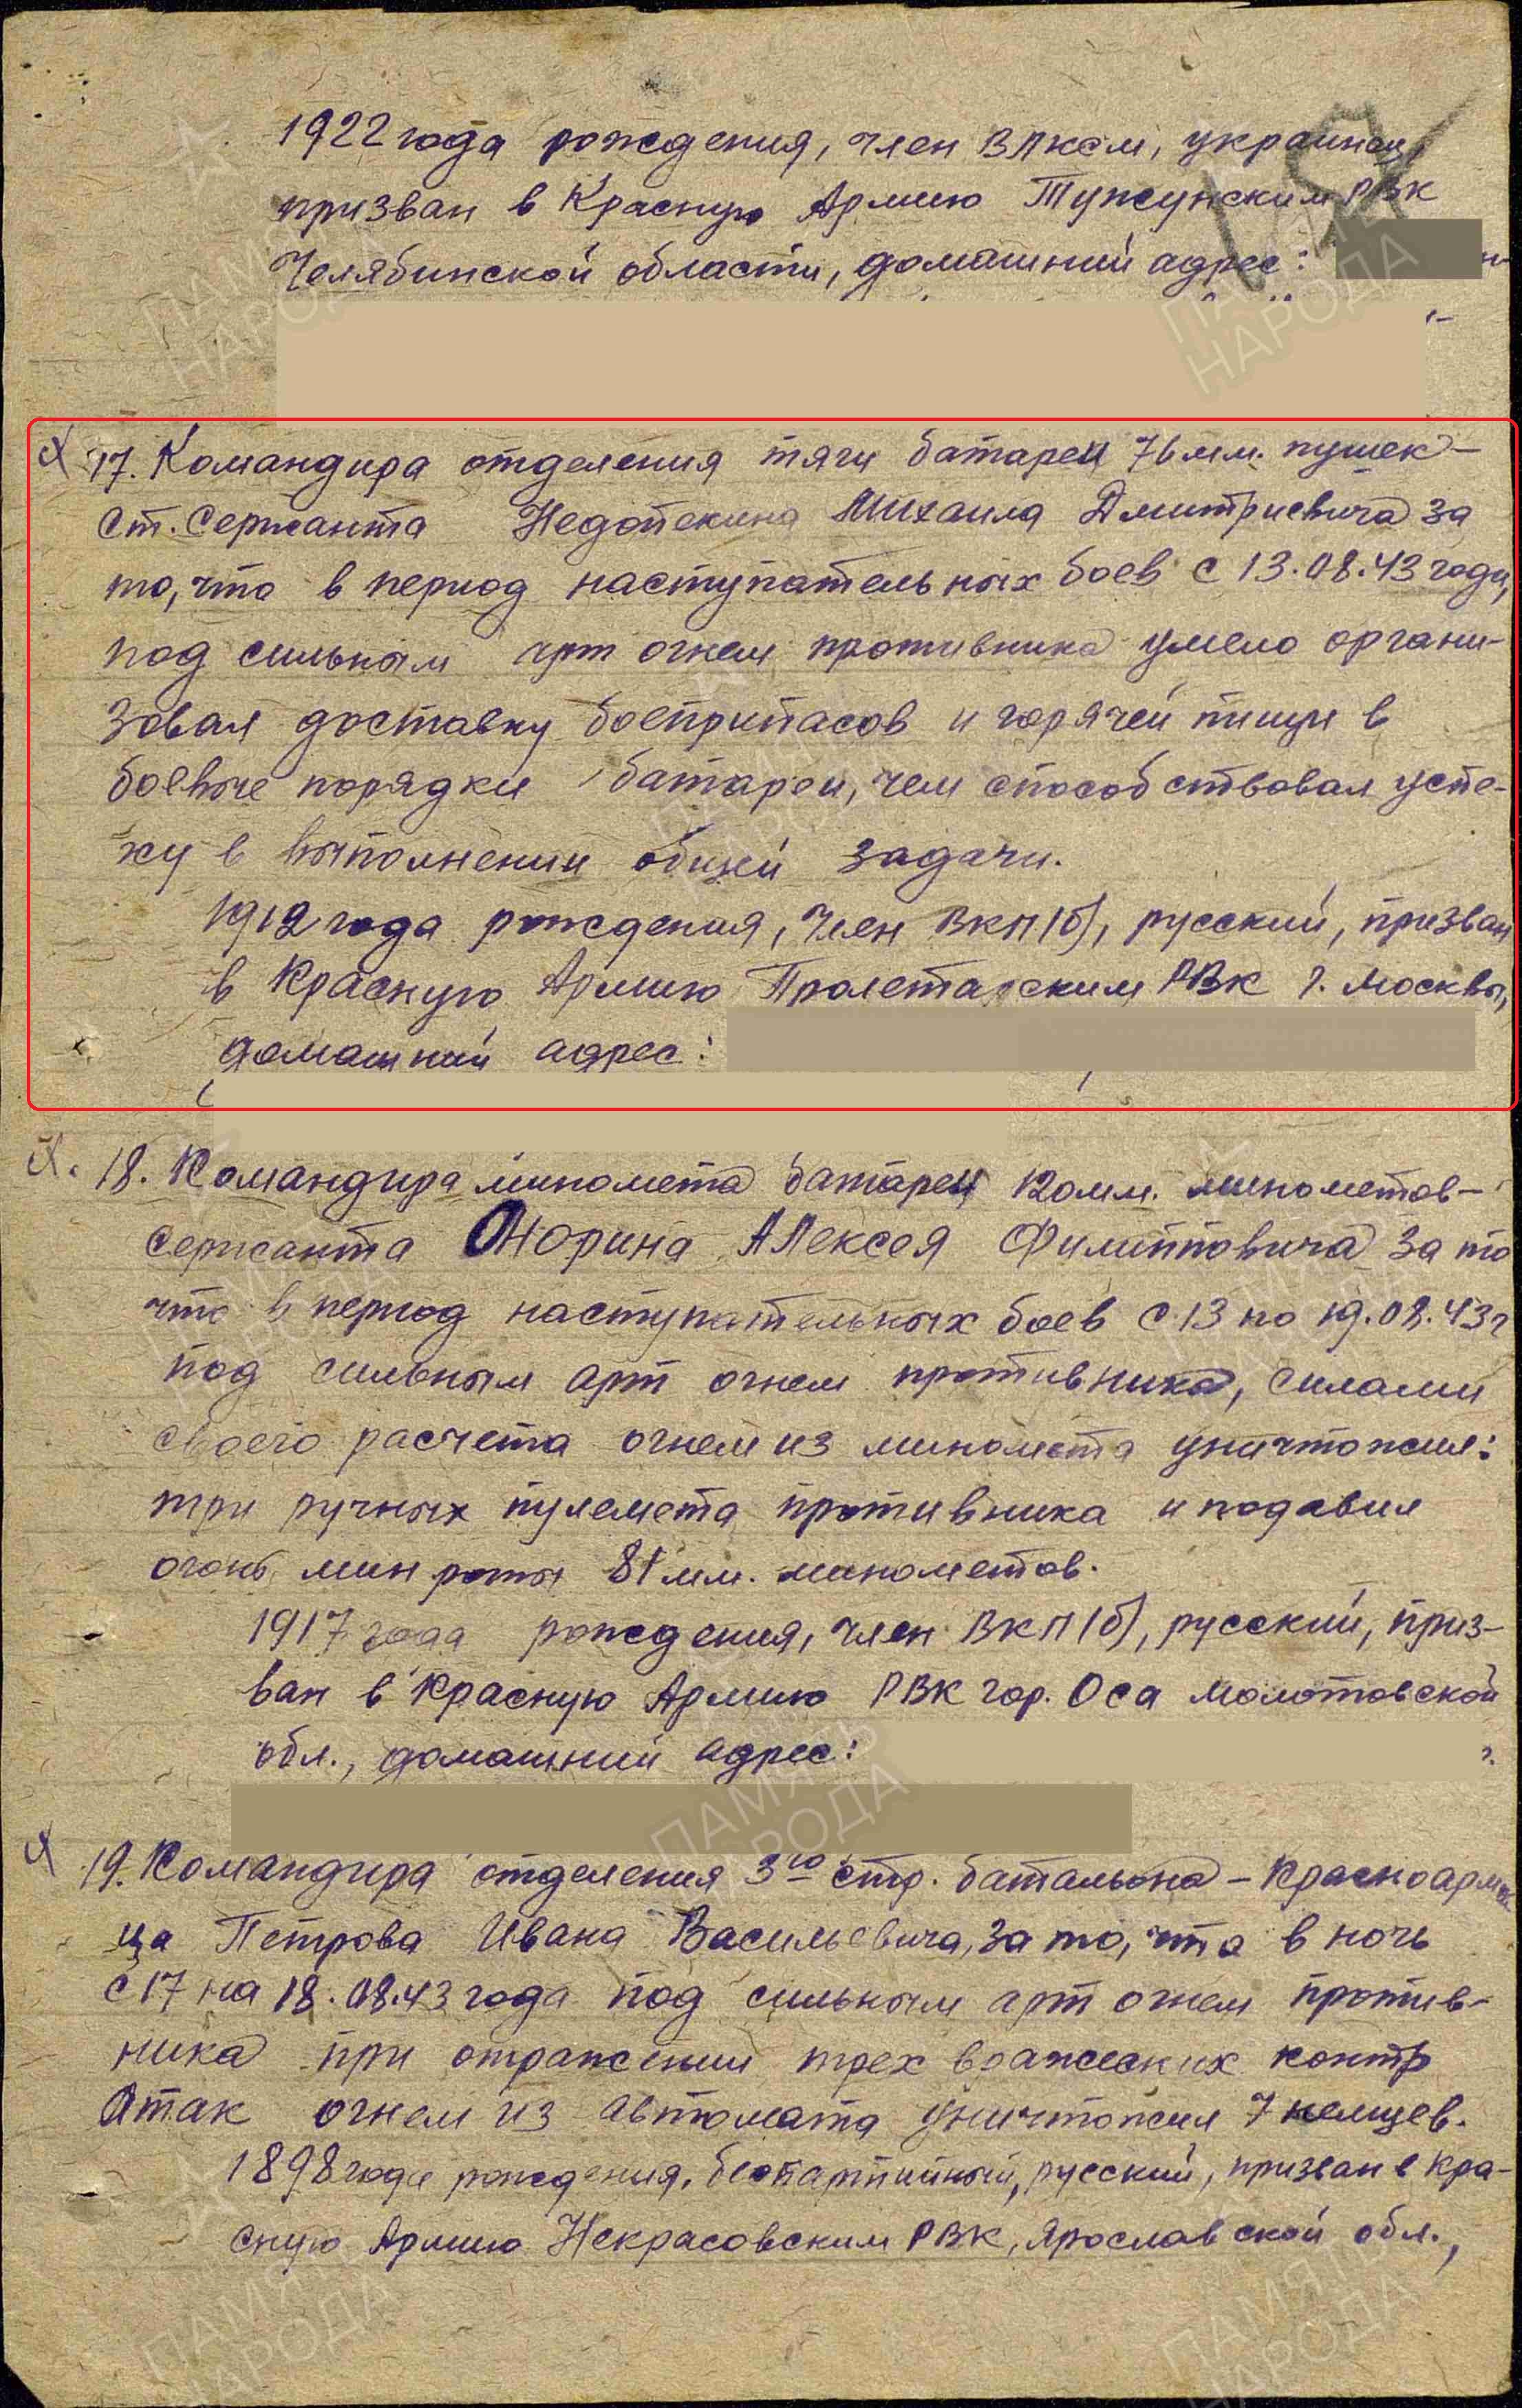 1922 года рождения, член ВЛКСМ, украинец,
призван в Красную Армию РВК
Челябинской области, домашний адрес:
17. Командира отделения тяги батареи 76 мм. пушек –
ст. сержанта Недопекина Михаила Дмитриевича за
то, что в период наступательных боев с 13.08.43 года,
под сильным арт огнем противника умело органи-
зовал доставку боеприпасов и горячей пищи в
боевые порядки батареи, чем способствовал успе-
ху в выполнении общей задачи.
1912 года рождения, член ВКП(б), русский, призван
в Красную Армию Пролетарским РВК г. Москвы,
домашний адрес:
18. Командира миномета батареи 120 мм. минометов –
сержанта Онорина Алексея Филипповича за то
что в период наступательных боев с 13 по 19.08.43 г
под сильным арт огнем противника, силами
своего расчета огнем из миномета уничтожил:
три ручных пулемета противника и подавил
огонь мин роты 81 мм. минометов.
1917 года рождения, член ВКП(б), русский, приз-
ван в Красную Армию РВК гор. Оса Молотовской
обл., домашний адрес:
19. Командира отделения 3го стр. батальона – Красноарме
йца Петрова Ивана Васильевича, за то, что в ночь
с 17 на 18.08.43 года под сильным арт огнем против-
ника при отражении трех вражеских контр
атак огнем из автомата уничтожил 7 немцев.
1898 года рождения, беспартийный, русский, призван в Кра-
сную Армию Некрасовским РВК, Ярославской обл.,
ПАМЯТЬ
НАРОДА